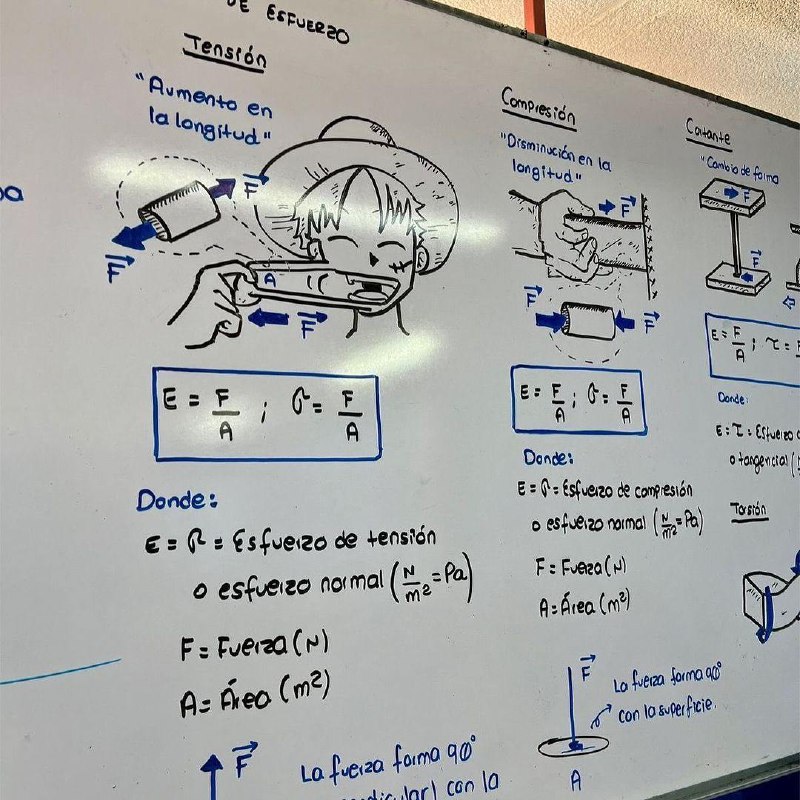 DE ESFUERZO
Tensión
"Aumento en
la longitud"
F
F
A
F
E = F/A ; σ = F/A
Donde:
E = σ = Esfuerzo de tensión
o esfuerzo normal (N/m² = Pa)
F = Fuerza (N)
A = Área (m²)
F
La fuerza forma 90°
con la
Compresión
"Disminución en la
longitud"
F
F
F
E = F/A ; σ = F/A
Donde:
E = σ = Esfuerzo de compresión
o esfuerzo normal (N/m² = Pa)
F = Fuerza (N)
A = Área (m²)
F
La fuerza forma 90°
con la superficie.
A
Cortante
"Cambio de forma
F
F
E = F/A ; τ =
Donde:
E = τ = Esfuerzo
o tangencial (
Torsión